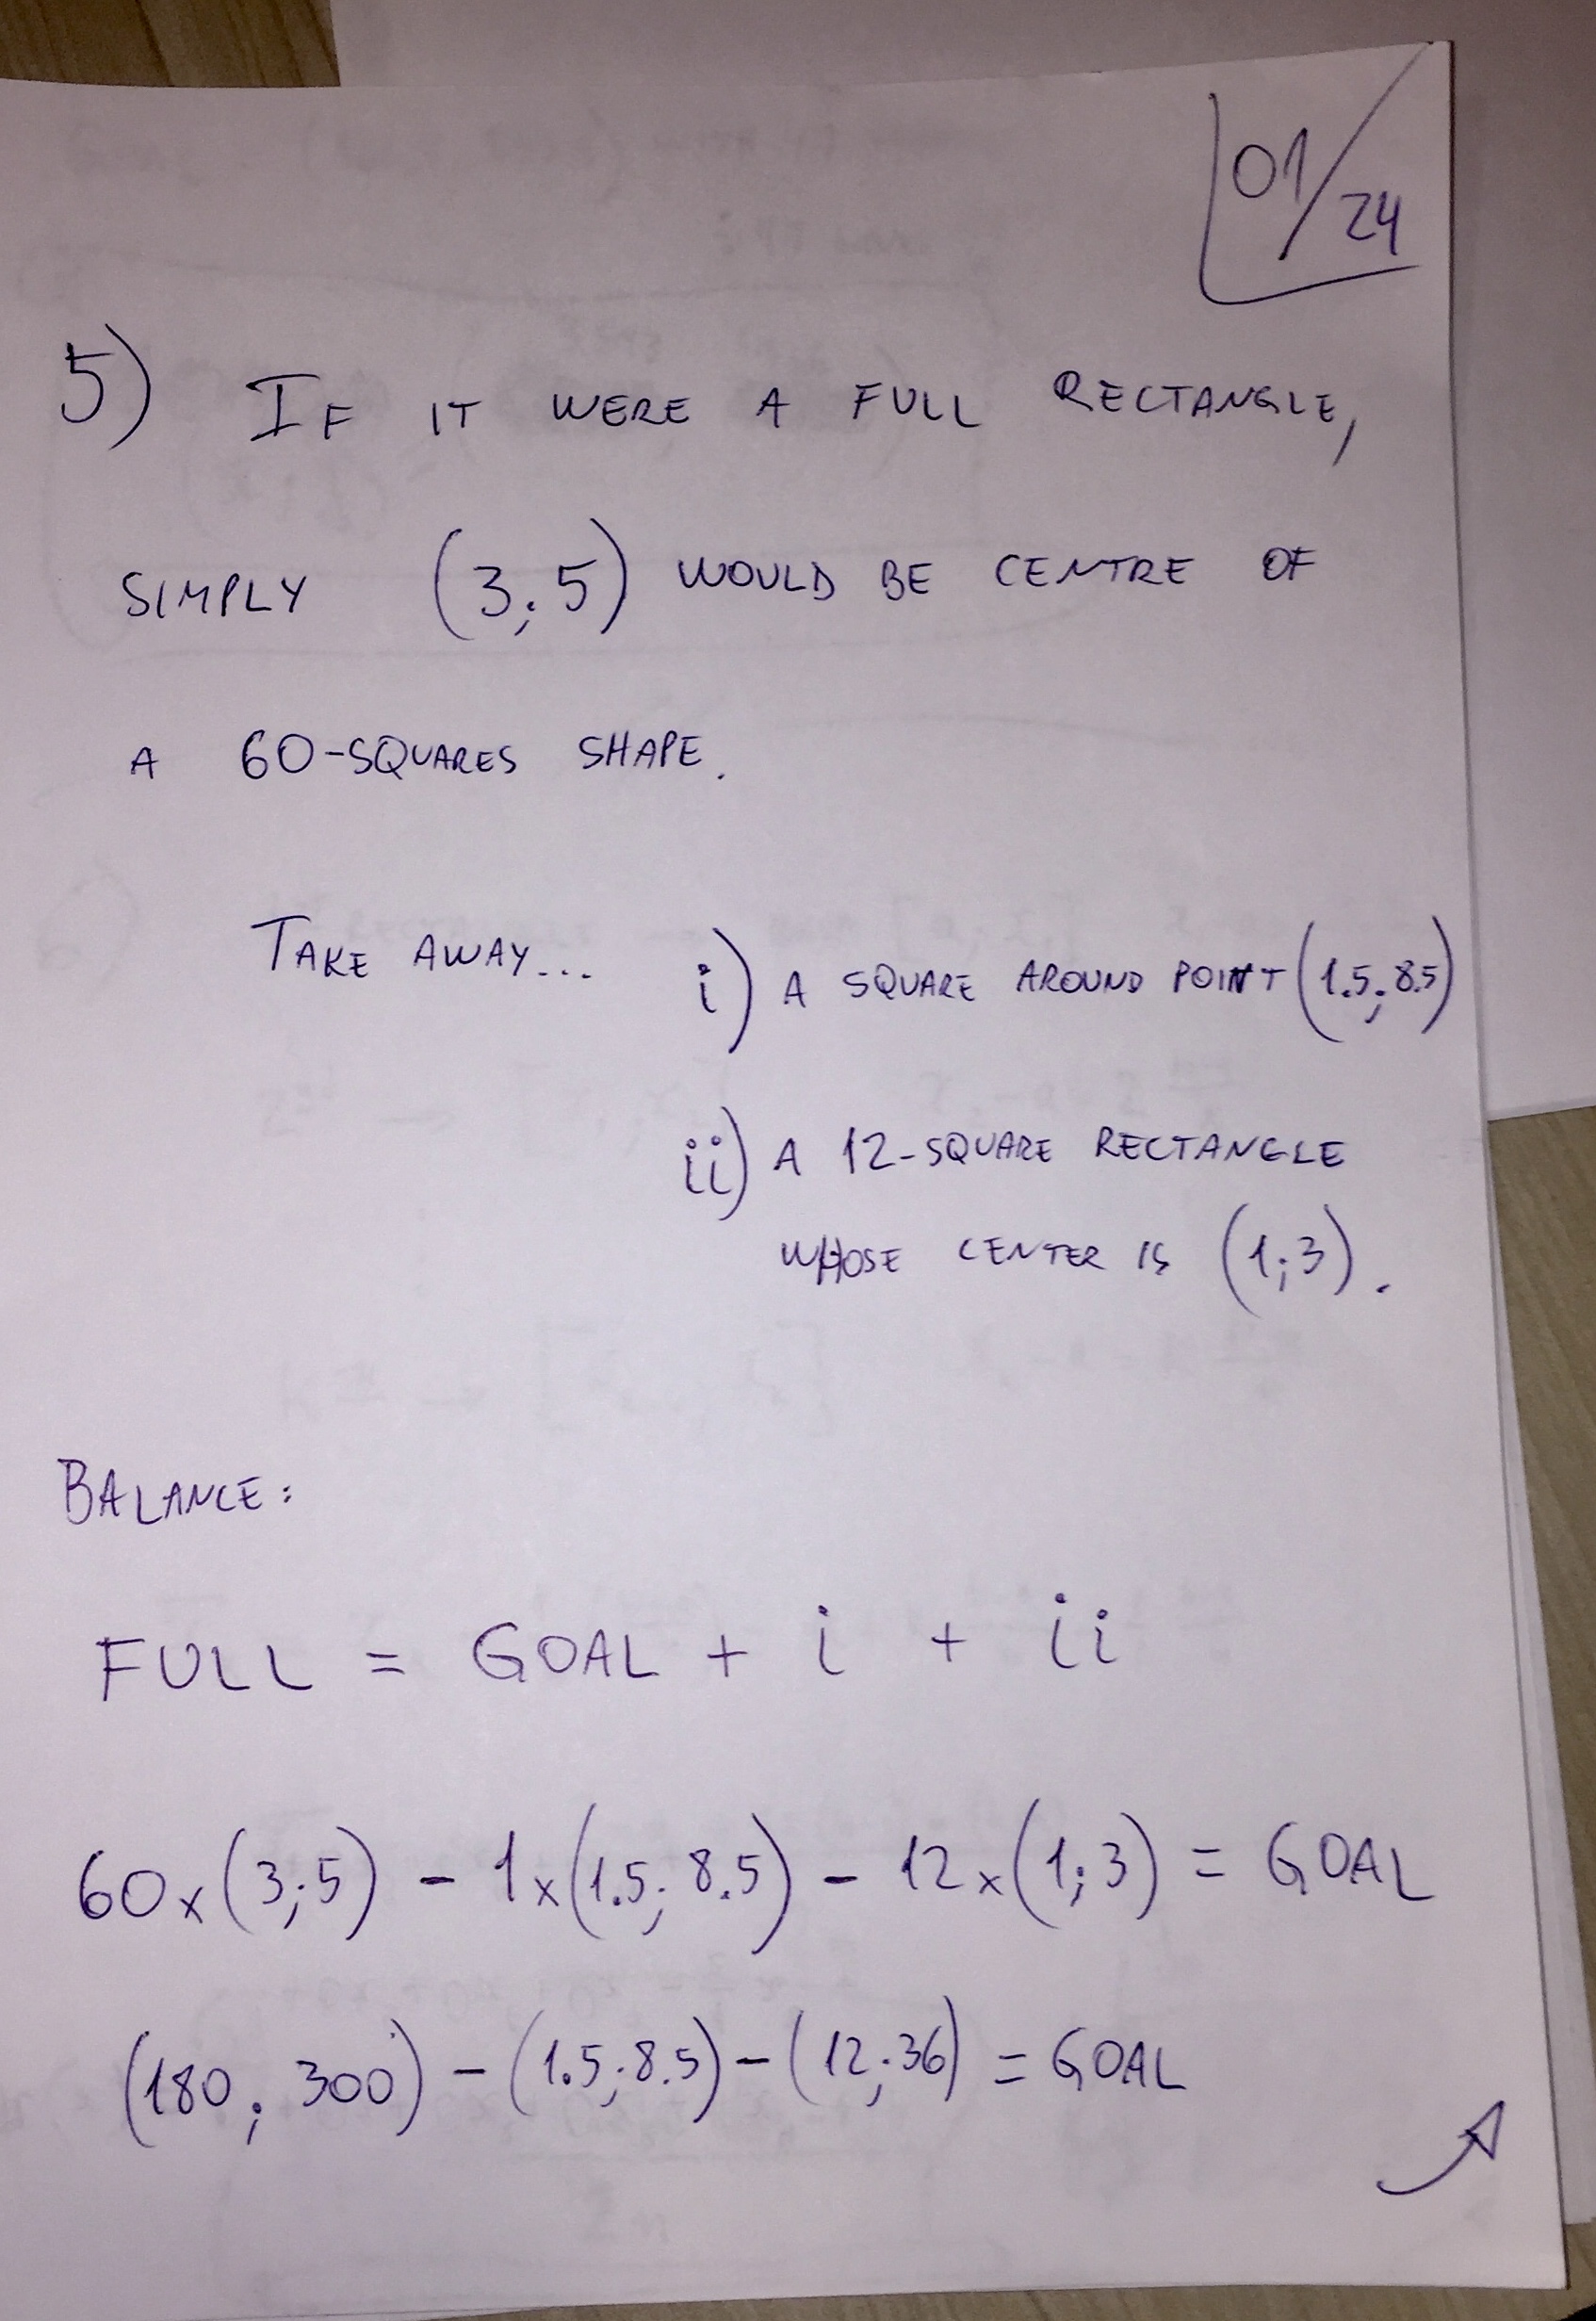 01/24
5) IF IT WERE A FULL RECTANGLE,
SIMPLY (3;5) WOULD BE CENTRE OF
A 60-SQUARES SHAPE.
TAKE AWAY... i) A SQUARE AROUND POINT (1.5;8.5)
ii) A 12-SQUARE RECTANGLE
WHOSE CENTER IS (1;3).
BALANCE:
FULL = GOAL + i + ii
60x(3;5) - 1x(1.5;8.5) - 12x(1;3) = GOAL
(180;300) - (1.5;8.5) - (12;36) = GOAL